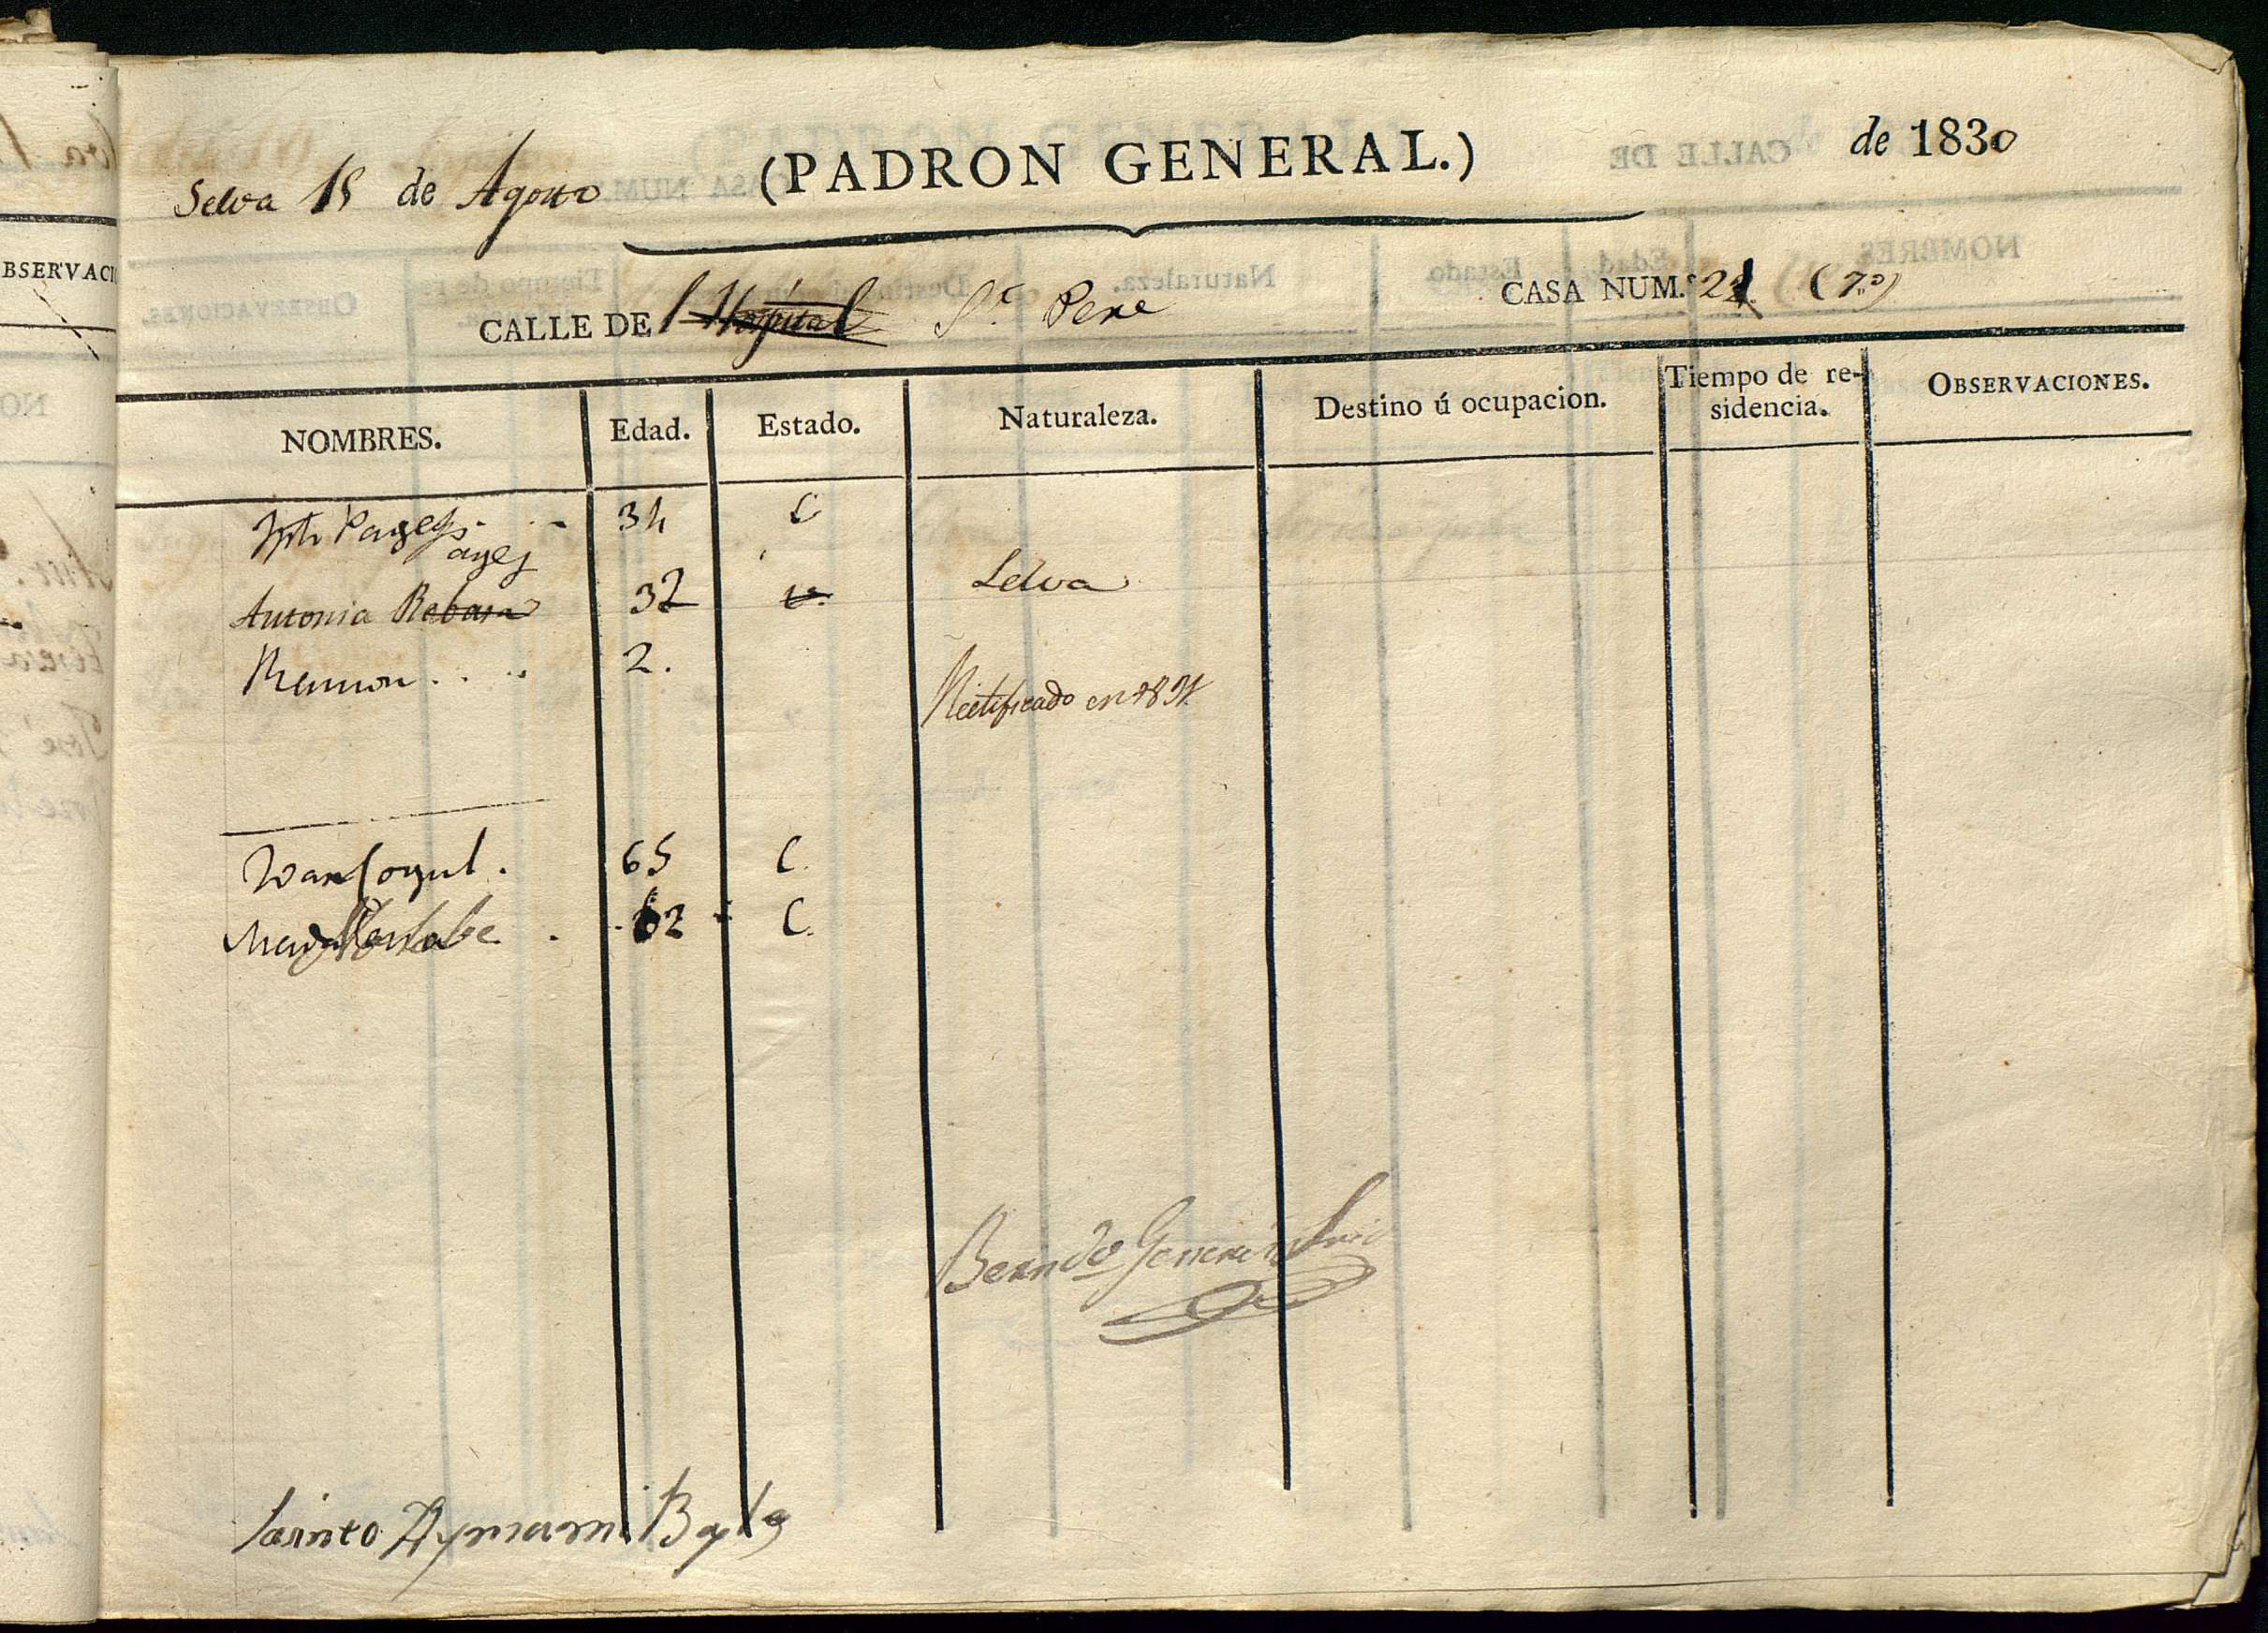 Selva 15 de Agosto (PADRON GENERAL.) de 1830
CALLE DE l'Hospital Sn. Pere CASA NUM.º 21 (7º)
NOMBRES. Edad. Estado. Naturaleza. Destino ú ocupacion. Tiempo de re-sidencia. OBSERVACIONES.
Jph Pages 34 C
ages
Antonia Rebasa 32 C. Selva
Ramon 2.
Rectificado en
Juan Cogul. 65 C.
Maria 62 C.
Berndo
Jacinto Aymami Bayle